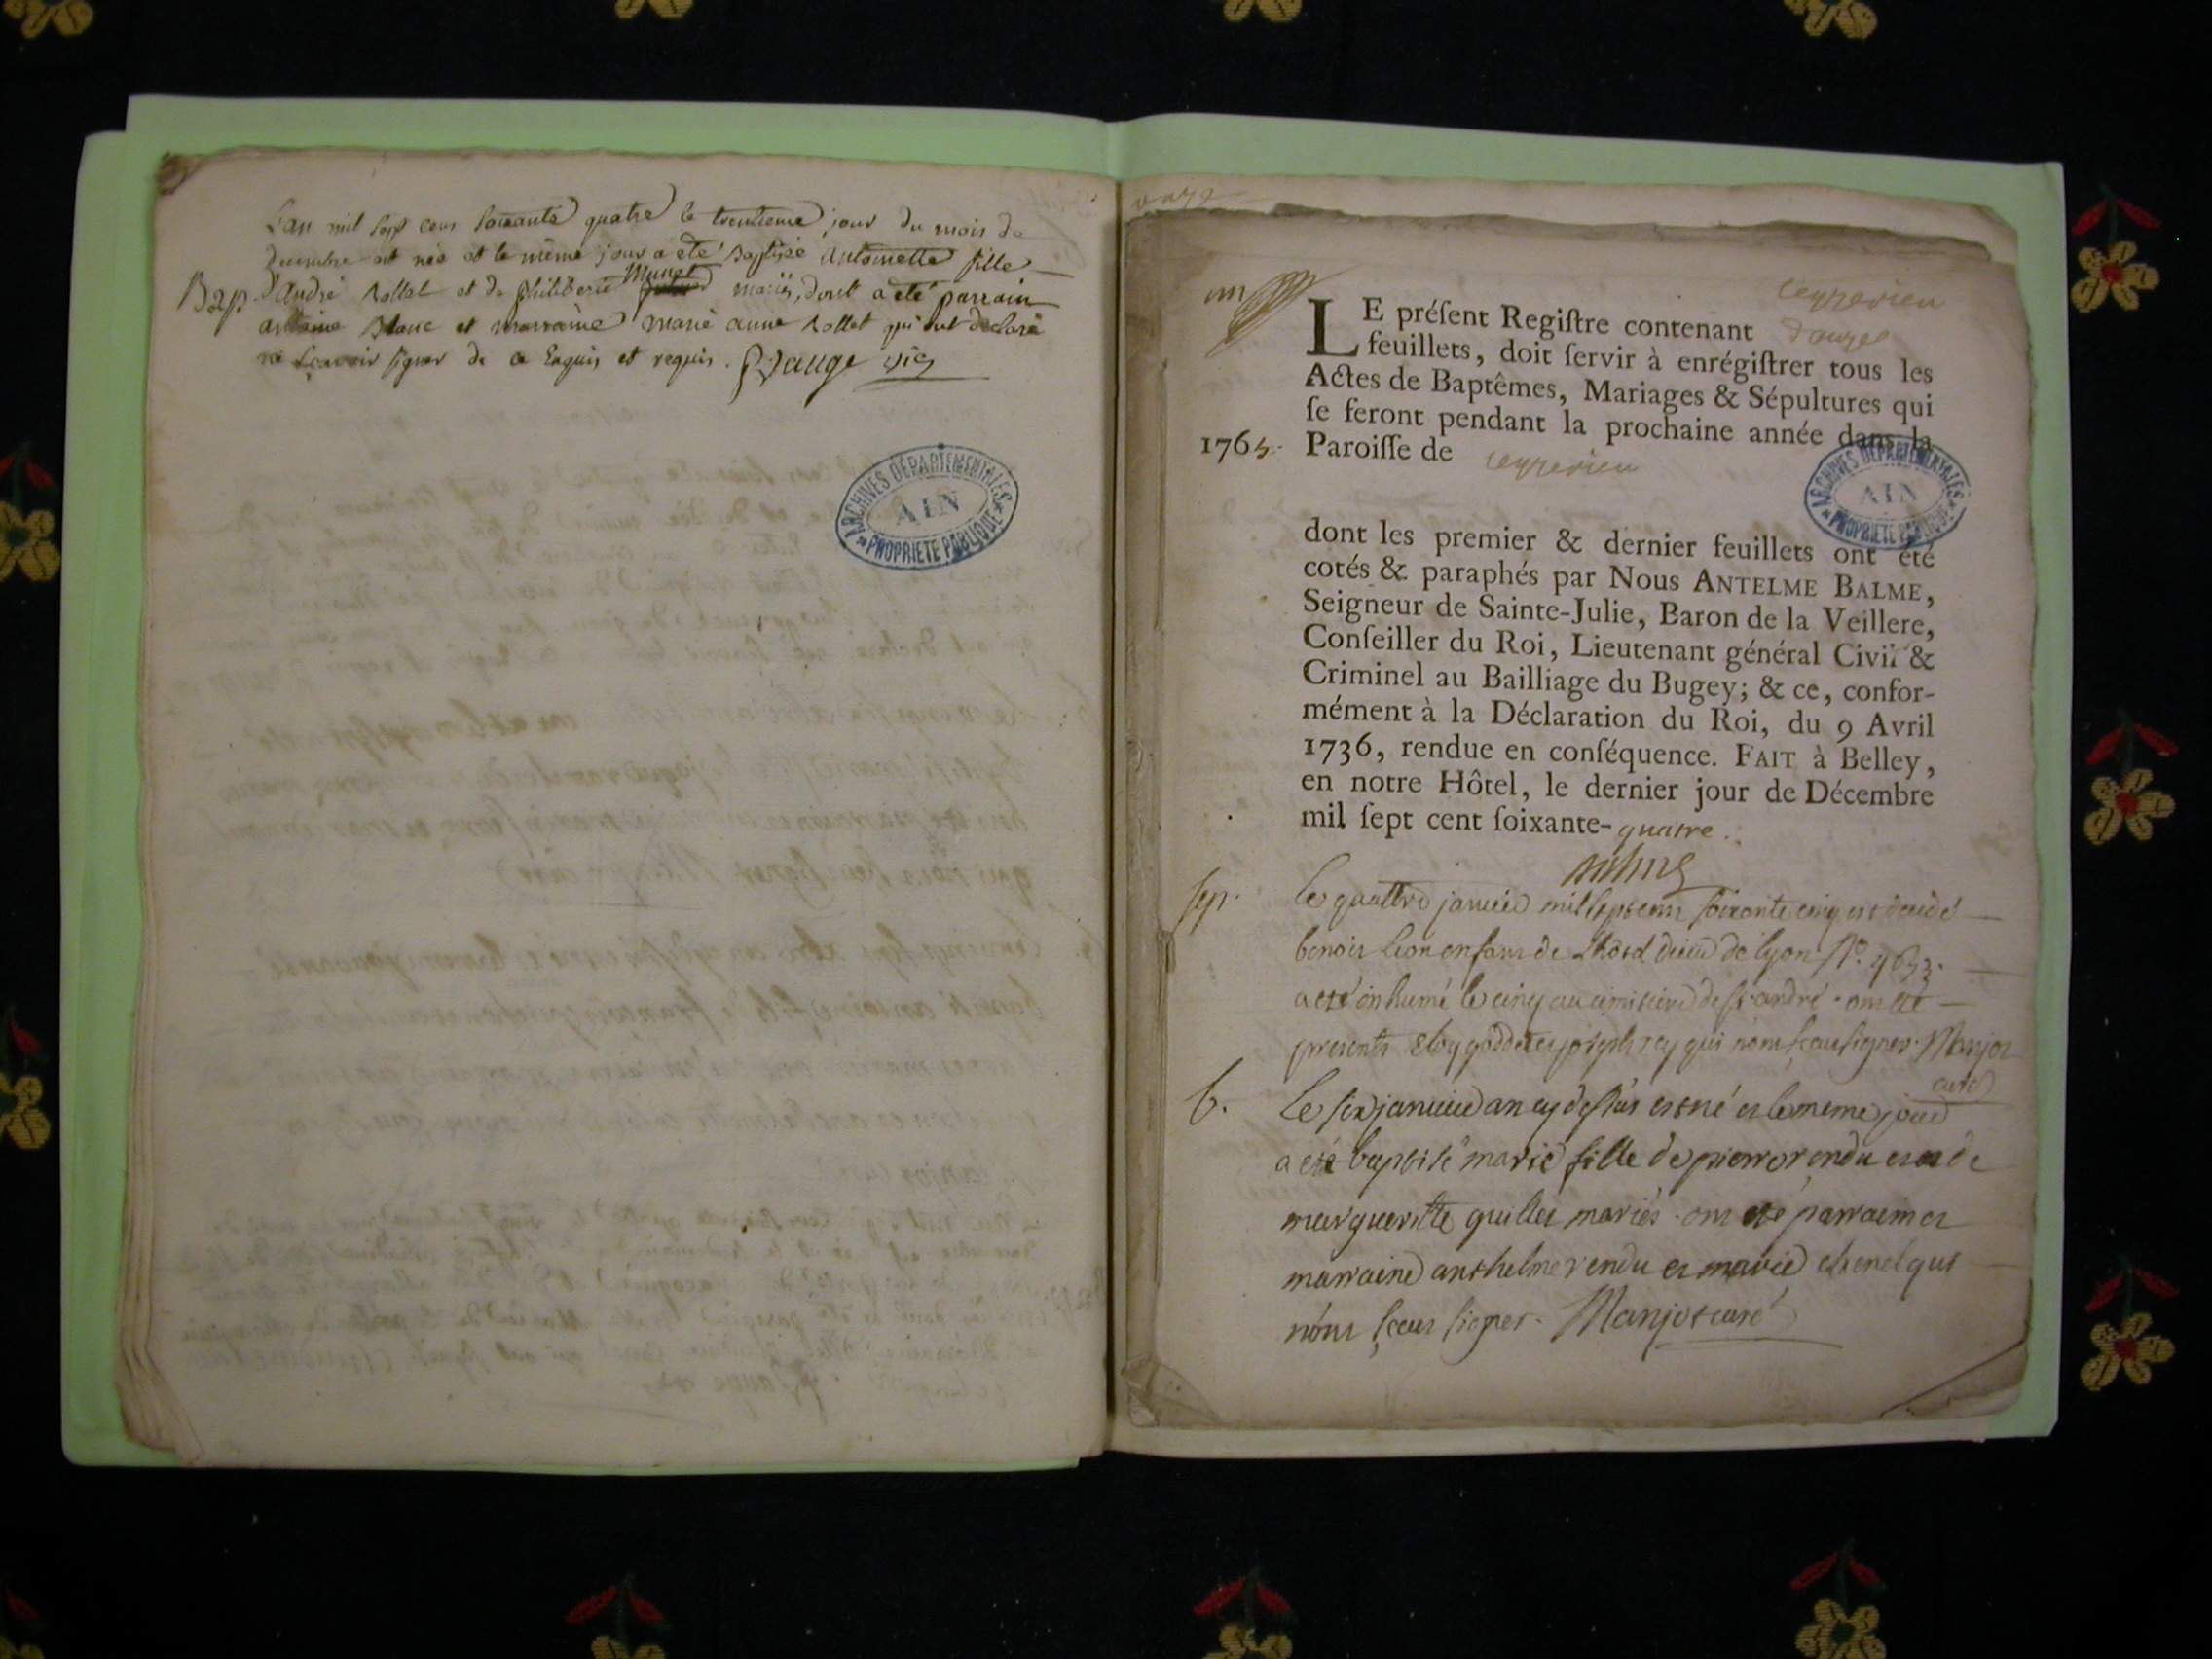 L'an mil sept cens soixante quatre le trentieme jour du mois de
decembre est née et le même jour a été Baptisée Antoinette fille
Bap. d'André Rollet et de philiberte Munet mariés, dont a été parrain
antoine Blanc et marraine marie anne Rollet qui ont déclaré
ne scavoir signer de ce Enquis et requis.
ARCHIVES DÉPARTEMENTALES
AIN
PROPRIÉTÉ PUBLIQUE
un
ceyzerieu
LE préſent Regiſtre contenant
feuillets, doit ſervir à enrégiſtrer tous les
Actes de Baptêmes, Mariages & Sépultures qui
ſe feront pendant la prochaine année dans la
1765. Paroiſſe de ceyzerieu
ARCHIVES DÉPARTEMENTALES
AIN
PROPRIÉTÉ PUBLIQUE
dont les premier & dernier feuillets ont été
cotés & paraphés par Nous ANTELME BALME,
Seigneur de Sainte-Julie, Baron de la Veillere,
Conſeiller du Roi, Lieutenant général Civil &
Criminel au Bailliage du Bugey; & ce, confor-
mément à la Déclaration du Roi, du 9 Avril
1736, rendue en conſéquence. FAIT à Belley,
en notre Hôtel, le dernier jour de Décembre
mil ſept cent ſoixante-quatre.
sep. le quattre janvier mil sept cent soixante cinq est decidé
benoit leon enfant de Lhotel dieu de lyon N°.
a eté inhumé le cinq au cimitiere de st andré. ont eté
presents joseph rey qui n'ont sceu signer. Manjot
curé
b. Le six janvier an cy dessus est né et le meme jour
a eté baptisé marie fille de pierre rendu et de
margueritte quillet mariés. ont eté parrain et
marraine anthelme rendu et marie chenet qui
n'ont sceu signer. Manjot curé